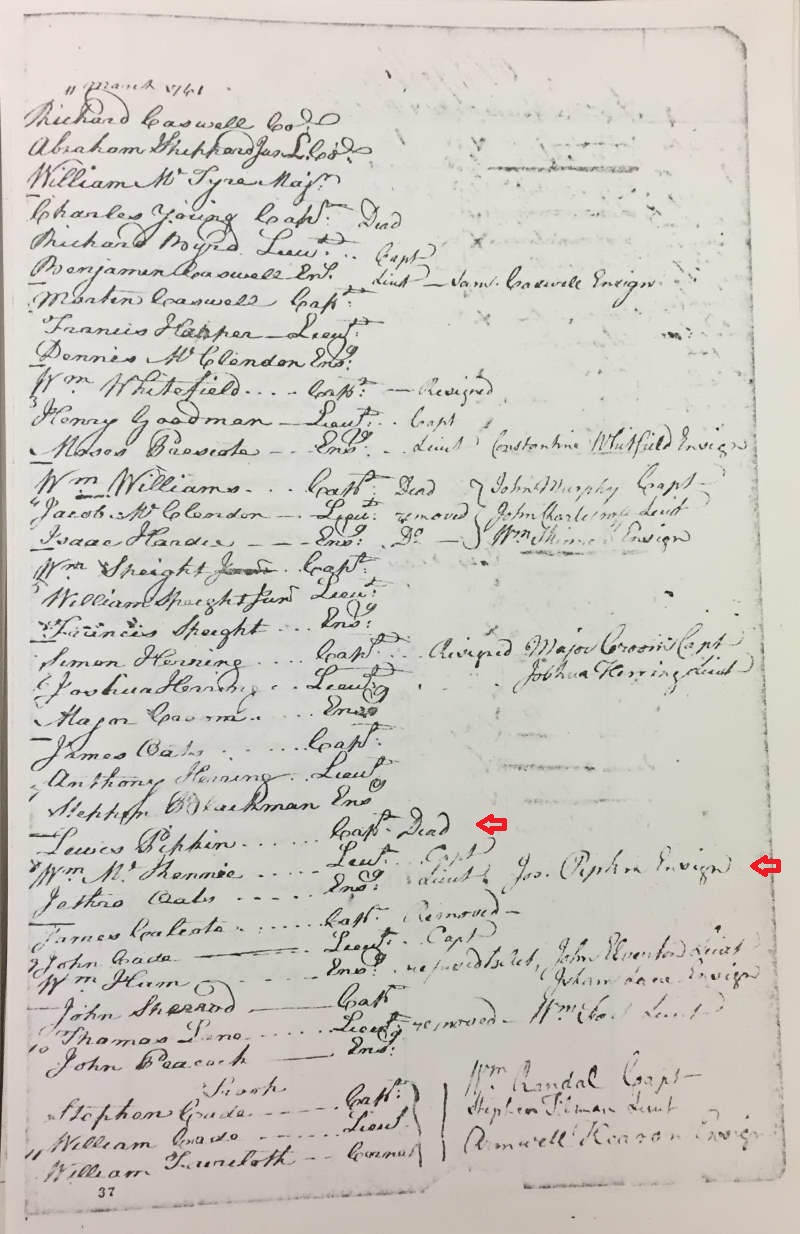 11 March 1741
Richard Caswell Col.
Abraham Sheppard Jun L. Col.
William Mc. Tyre Majr.
Charles Young Capt. Dead
Richard Byrd Lieut. .. Capt
Benjamin Caswell Ens. Lieut — Sam. Caswell Ensign
Martin Caswell Capt.
Francis Harper — Lieut.
Dennis Mc. Clendon Ensg.
Wm. Whitefield .... Capt. — Resigned
3 Henry Goodman — Lieut. .. Capt
Moses Prescote — .. Ensg. .. Lieut Constantine Whitfield Ensign
Wm Williams ... Capt. Dead } John Murphy Capt
4 Jacob Mc. Clendon — Lieut. removed } John Lieut
Isaac Hardee — — — Ensg. Do — } Wm Ensign
Wm Speight .. Capt.
5 William Speight Junr Lieut.
Francis Speight ... Ensg.
Simon Herring .... Capt. .. Resigned Major Croom Capt
6 Joshua Herring .. Lieut. . . Joshua Herring Lieut
Major Croom .... Ensg
James Oats ...... Capt.
7 Anthony Herring .. Lieut.
Stephen Blackman Ensg
Lewis Pipkin ..... Capt. Dead
Wm. Mc. Kennie .. Lieut. .. Capt
Jethro Oats ..... Ensg. .. Lieut. Jos. Pipkin Ensign
James .... Capt. Removed —
9 John Cade ——— Lieut. .. Capt
Wm Ham ....... Ensg. .. John Elventon Lieut
Isham Ensign
John Sherrard ——— Capt
10 Thomas Lane ..... Lieut. removed — Wm Lieut
John Peacock —— Ensg.
Troop
Stephen Cade ------ Capt. } Wm Randal Capt
11 William Cade ------- Lieut. } Stephen Tilman Lieut
William —— Cornet } Armwell Ensign
37